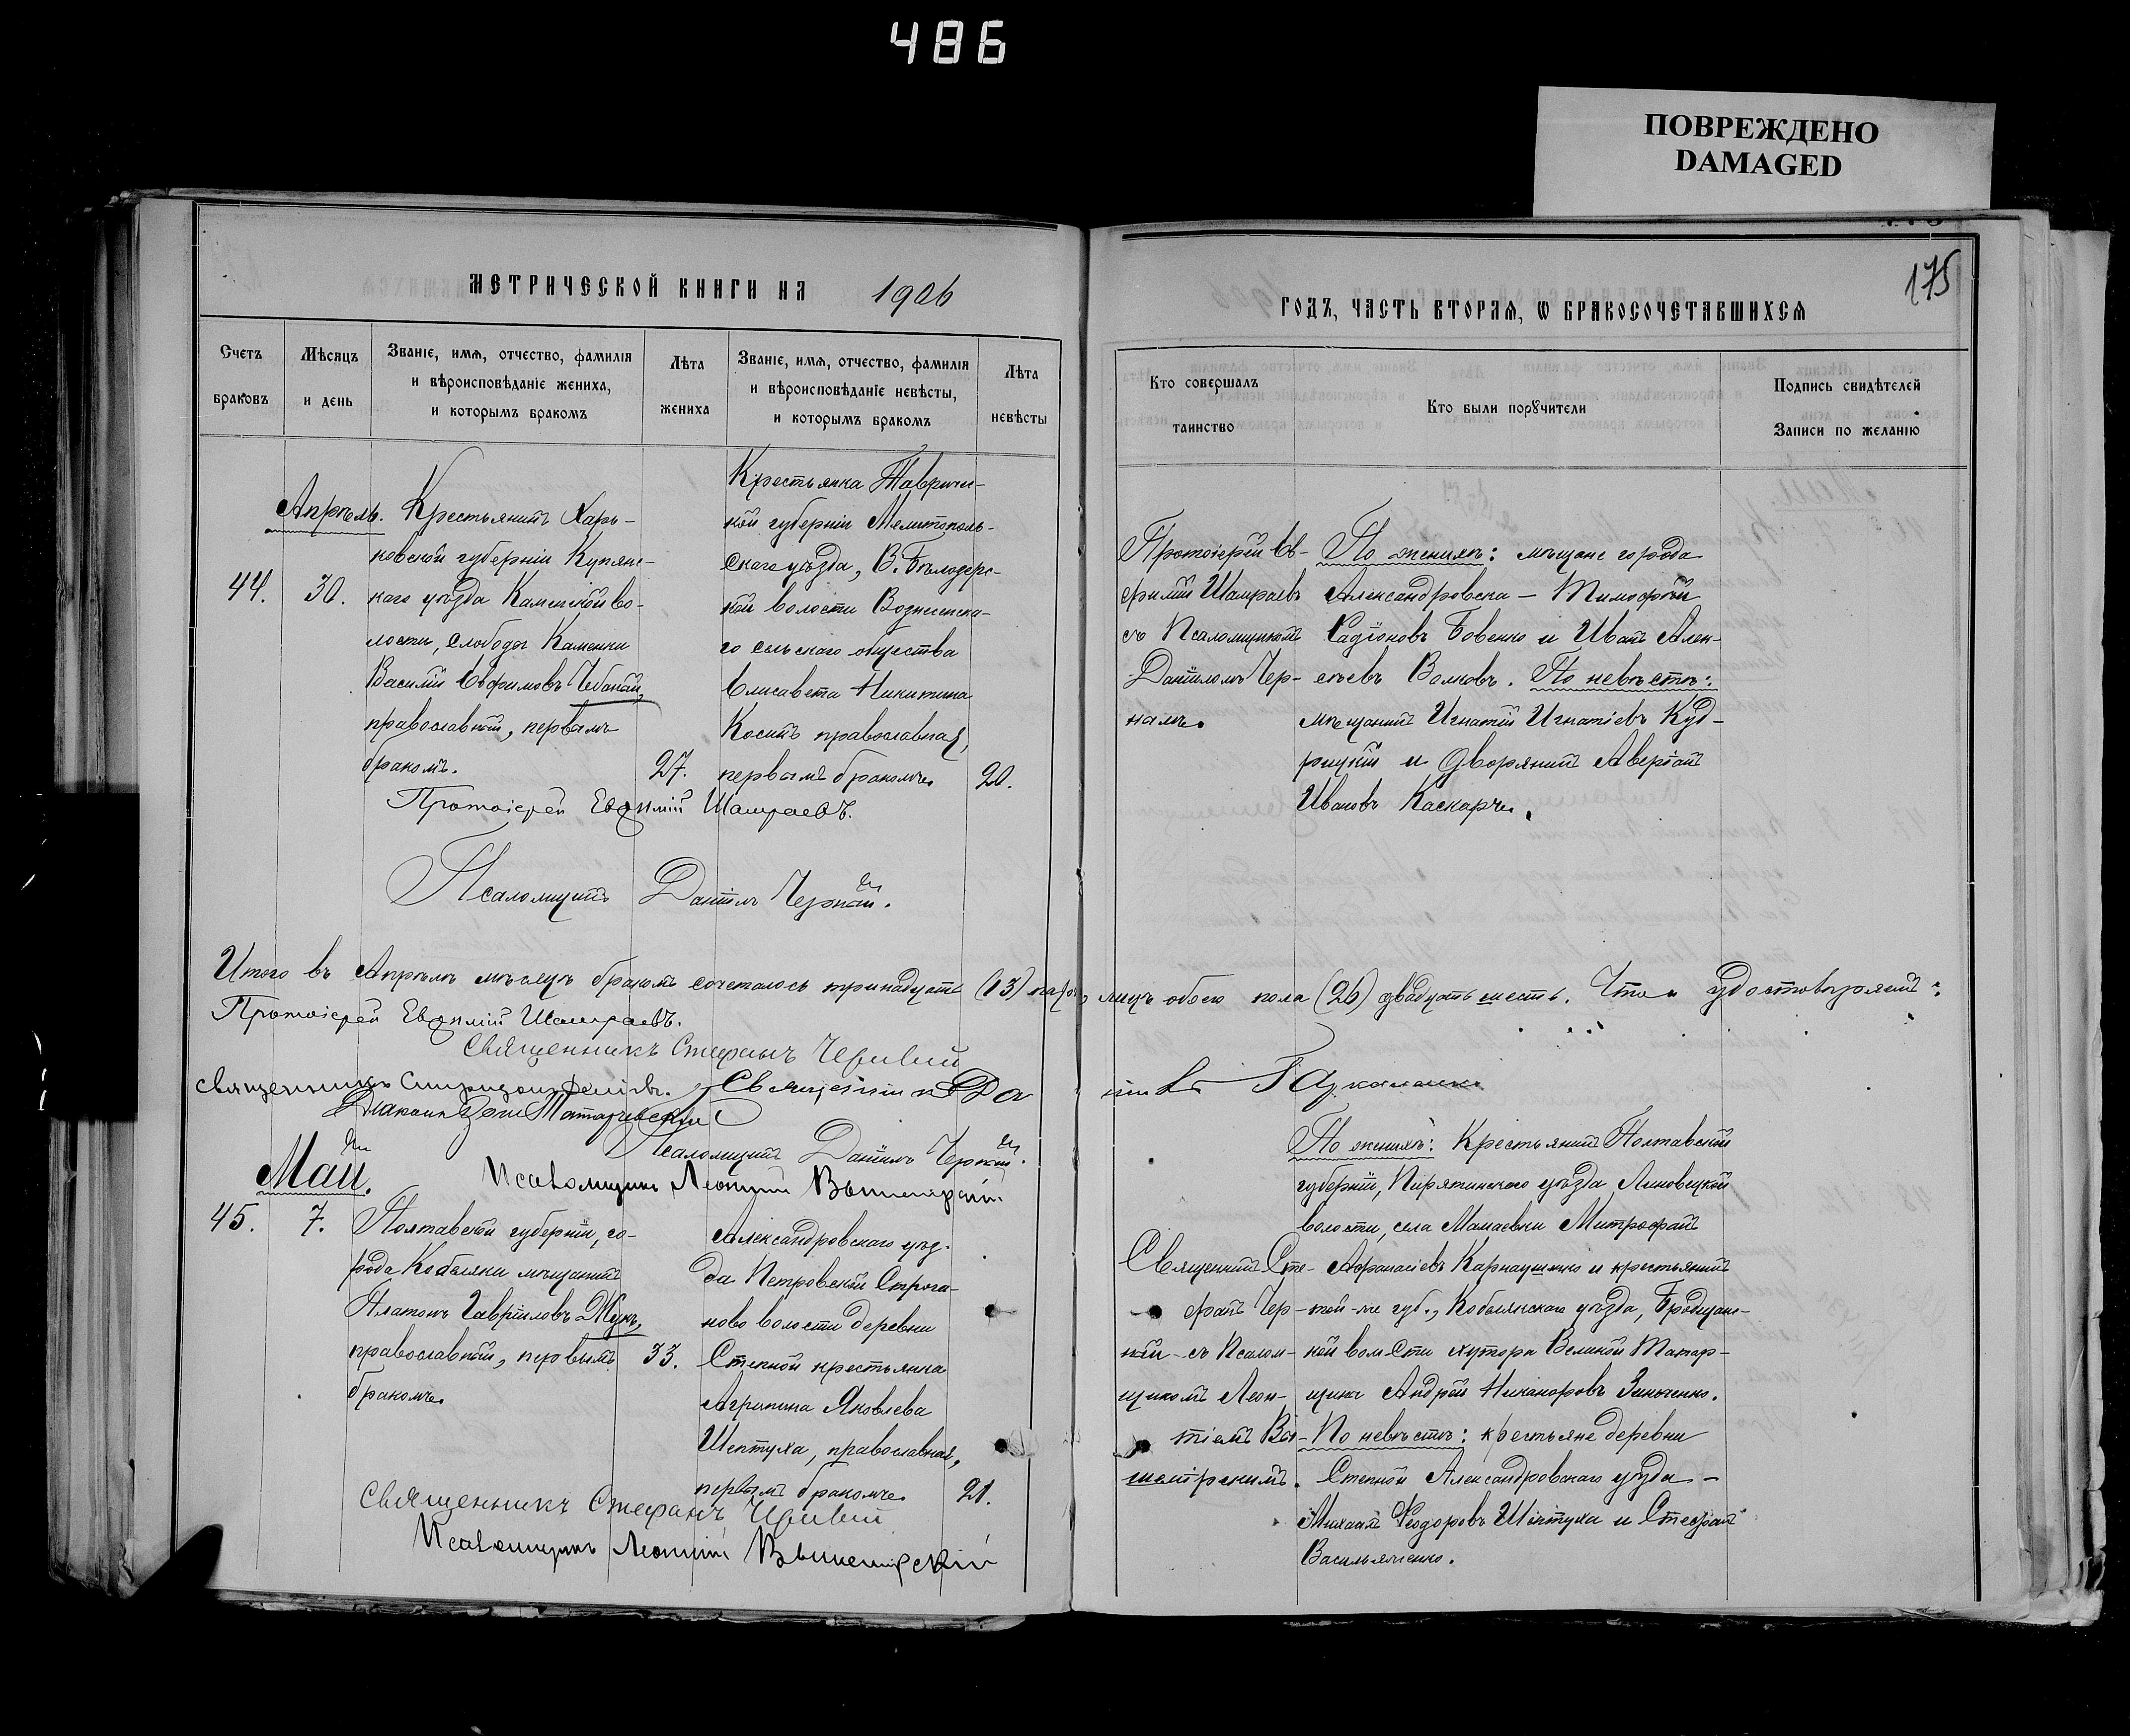 486
ПОВРЕЖДЕНО
DAMAGED
175
МЕТРИЧЕСКОЙ КНИГИ НА 1906
ГОДЪ, ЧАСТЬ ВТОРАѦ, Ѡ БРАКОСОЧЕТАВШИХСѦ
Счетъ браковъ
Мѣсяцъ и день
Званіе, имя, отчество, фамилія
и вѣроисповѣданіе жениха,
и которымъ бракомъ
Лѣта жениха
Званіе, имя, отчество, фамилія
и вѣроисповѣданіе невѣсты,
и которымъ бракомъ
Лѣта невѣсты
Кто совершалъ
таинство
Кто были поручители
Подпись свидѣтелей
Записи по желанію
Апрѣль.
44.
30.
Крестьянинъ Харь-
ковской губерніи Купянс-
каго уѣзда Каменской во-
лости, слободы Каменки
Василій Евфимовъ Чебаный,
православный, первымъ
бракомъ.
27.
Крестьянка Тавричес-
кой губерніи Мелитополь-
скаго уѣзда, В. Бѣлозерс-
кой волости Вознесенска-
го сельскаго общества
Елисавета Никитина
Косинъ православная,
первымъ бракомъ.
20.
Протоіерей Ев-
фимій Шамраевъ
съ Псаломщикомъ
Даніиломъ Чер-
нымъ.
По женихѣ: мѣщане города
Александровска — Тимофей
Радіоновъ Бовенко и Иванъ Алек-
сѣевъ Волковъ. По невѣстѣ:
мѣщанинъ Игнатій Игнатіевъ Куд-
рицкій и дворянинъ Аверіанъ
Ивановъ Каскарчи.
Протоіерей Евѳимій Шамраевъ.
Псаломщикъ Даніилъ Черный.
Итого въ Апрѣлѣ мѣсяцѣ бракомъ сочеталось тринадцать (13) паръ, лицъ обоего пола (26) двадцать шесть. Что и удостовѣряемъ:
Протоіерей Евѳимій Шамраевъ.
Священникъ Стефанъ Черный
Священникъ Спиридонъ
Священникъ Даніилъ
Діаконъ
Псаломщикъ Даніилъ Черный.
Псаломщикъ Леонтій Вышемірскій.
Май.
45.
7.
Полтавской губерніи, го-
рода Кобеляки мѣщанинъ
Платонъ Гавріиловъ Жукъ,
православный, первымъ
бракомъ.
33.
Александровскаго уѣз-
да Петровской Строга-
ново волости деревни
Степной крестьянка
Агрипина Яковлева
Шептуха, православная,
первымъ бракомъ.
21.
Священникъ Сте-
фанъ Чер-
ный съ Псалом-
щикомъ Леон-
тіемъ Вы-
шемірскимъ.
По женихѣ: Крестьянинъ Полтавской
губерніи, Пирятинскаго уѣзда Линовицкой
волости, села Мамаевки Митрофанъ
Афанасіевъ Карнаушенко и крестьянинъ
той-же губ., Кобелякскаго уѣзда, Бродщанс-
кой волости хутора Великой Татар-
щина Андрей Никаноровъ Зинченко.
По невѣстѣ: крестьяне деревни
Степной Александровскаго уѣзда —
Михаилъ Ѳеодоровъ Шептуха и Стефанъ
Васильченко.
Священникъ Стефанъ Черный
Псаломщикъ Леонтій Вышемірскій